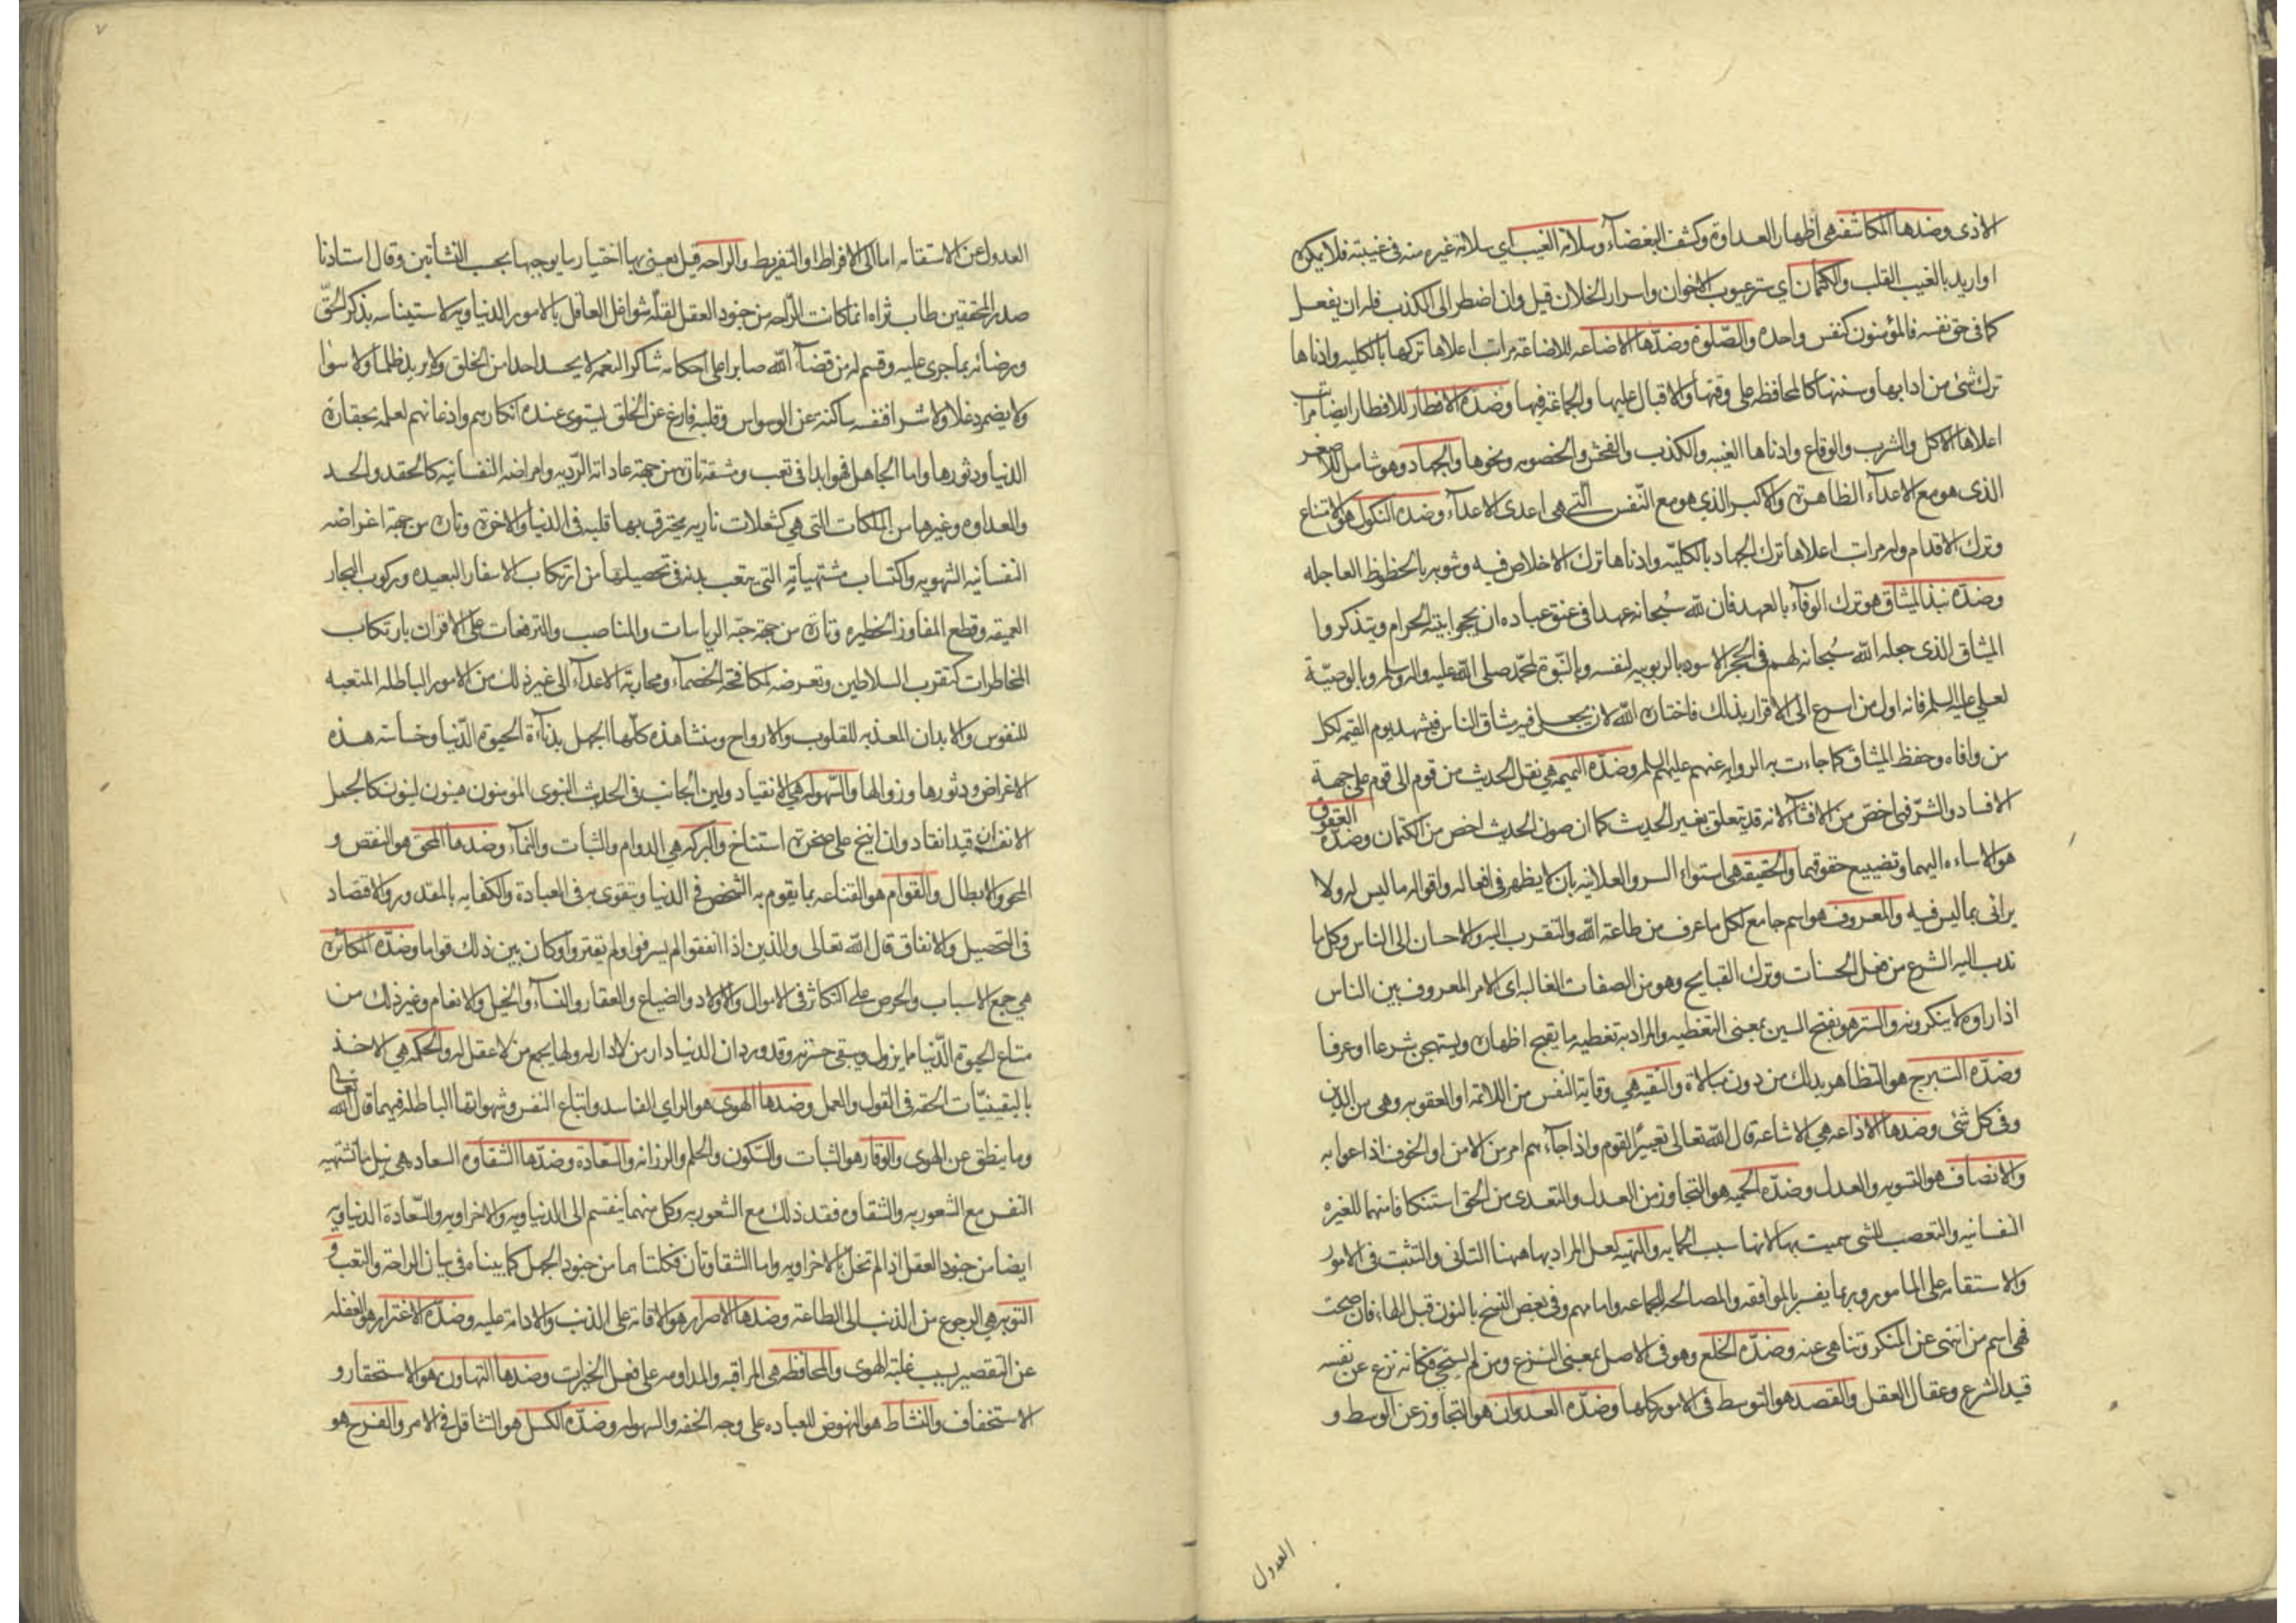 الاذى وضدها المكاشفه هي اظهار العداوة وكشف البغضاء وسلامة الغيب اي سلامة غيره منه في غيبته فلا يمكره
او اريد بالغيب القلب والكتمان اي ستر عيوب الاخوان واسرار الخلان قيل وان اضطر الى الكذب فله ان يفعل
كما في حق نفسه فالمؤمنون كنفس واحده والصلوة وضدها الاضاعه للاضاعة مراتب اعلاها تركها بالكليه وادناها
ترك شئ من ادابها وسننها كالمحافظه على وقتها والاقبال عليها والجماعة فيها وضده الافطار للافطار ايضا مراتب
اعلاها الاكل والشرب والوقاع وادناها الغيبه والكذب والفحش والخصومه ونحوها والجهاد وهو شامل للاصغر
الذى هو مع الاعداء الظاهرة والاكبر الذي هو مع النفس التي هي اعدى الاعداء وضده النكول هو الامتناع
وترك الاقدام وله مراتب اعلاها ترك الجهاد بالكليه وادناها ترك الاخلاص فيه وشوبه بالحظوظ العاجله
وضده نبذ الميثاق هو ترك الوفاء بالعهد فان لله سبحانه عهدا في عنق عباده ان يحجوا بيته الحرام ويتذكروا
الميثاق الذى جعله الله سبحانه لهم في الحجر الاسود بالربوبيه لنفسه وبالنبوة لمحمد صلى الله عليه واله وسلم وبالوصية
لعلى عليه السلم فانه اول من اسرع الى الاقرار بذلك فاختاره الله لان يجعل فيه ميثاق الناس فيشهد يوم القيمه لكل
من وافاه وحفظ الميثاق كما جاءت به الروايه عنهم عليهم السلم وضده النميمه هي نقل الحديث من قوم الى قوم على جهة
الافساد والشر فهي اخص من الافشاء لانه قد يتعلق بغير الحديث كما ان صون الحديث اخص من الكتمان وضده العقوق
هو الاساءه اليهما وتضييع حقوقهما والحقيقه هي استواء السر والعلانيه بان لا يظهر في افعاله واقواله ما ليس له ولا
يرائى بما ليس فيه والمعروف هو اسم جامع لكل ما عرف من طاعة الله والتقرب اليه والاحسان الى الناس وكل ما
ندب اليه الشرع من فعل الحسنات وترك القبايح وهو من الصفات الغالبه اى الامر المعروف بين الناس
اذا راوه لا ينكرونه والستر هو بفتح السين بمعنى التغطيه والمراد به تغطيه ما يقبح اظهاره ويستهجن شرعا او عرفا
وضده التبرج هو التظاهر بذلك من دون مبالاة والتقيه هي وقاية النفس من اللائمة او العقوبه وهي من الدين
وفي كل شئ وضدها الاذاعه هي الاشاعة قال الله تعالى تعييرا لقوم واذا جاءهم امر من الامن او الخوف اذاعوا به
والانصاف هو التسويه والعدل وضده الحميه هو التجاوز من العدل والتعدى من الحق استنكافا منهما للغيره
النفسانيه والتعصب للشئ سميت بها لانها سبب الحمايه والتهيه لعل المراد بها ههنا التانى والتثبت في الامور
والاستقامه على المامور وربما يفسر بالموافقه والمصالحه للجماعه وامامهم وفي بعض النسخ بالنون قبل الهاء فان صحت
فهى اسم من انتهى عن المنكر وتناهى عنه وضده الخلع وهو في الاصل بمعنى النزع ومن لم يستحى فكانه نزع عن نفسه
قيد الشرع وعقال العقل والقصد هو التوسط في الامور كلها وضده العدوان هو التجاوز عن الوسط و
العدول
٧
العدول عن الاستقامه اما الى الافراط او التفريط والراحه قيل يعنى بها اختيار ما يوجبها بحسب النشأتين وقال استادنا
صدر المحققين طاب ثراه انما كانت الراحه من جنود العقل لقلة شواغل العاقل بالامور الدنياويه لاستيناسه بذكر الحق
ورضائه بما جرى عليه وقسم له من قضاء الله صابرا على احكامه شاكرا لنعمه لا يحسد احدا من الخلق ولا يريد ظلما ولا سوا
ولا يضمر دغلا ولا شرا فنفسه ساكنة عن الوسواس وقلبه فارغ عن الخلق يستوى عنده انكارهم واذعانهم لعلمه بحقارة
الدنيا ودثورها واما الجاهل فهو ابدا في تعب ومشقة تارة من جهة عاداته الرديه وامراضه النفسانيه كالحقد والحسد
والعداوه وغيرها من الملكات التى هي كشعلات ناريه يحترق بها قلبه في الدنيا والاخرة وتارة من جهة اغراضه
النفسانيه الشهويه واكتساب مشتهياته التى يتعب بدنه في تحصيلها من ارتكاب الاسفار البعيده وركوب البحار
العميقه وقطع المفاوز الخطيره وتارة من جهة حبه الرياسات والمناصب والترفعات على الاقران بارتكاب
المخاطرات كتقرب السلاطين وتعرضه لمكافحة الخصماء ومحاربة الاعداء الى غير ذلك من الامور الباطله المتعبه
للنفوس والابدان المعذبه للقلوب والارواح ومنشا هذه كلها الجهل بدناءة الحيوة الدنيا وخساسة هذه
الاغراض ودثورها وزوالها والسهوله هي الانقياد ولين الجانب في الحديث النبوى المؤمنون هينون لينون كالجمل
الانف ان قيد انقاد وان انيخ على صخرة استناخ والبركه هي الدوام والثبات والنماء وضدها المحق هو النقص و
المحو والابطال والقوام هو القناعه بما يقوم به الشخص في الدنيا ويتقوى به في العبادة والكفايه بالمقدور والاقتصاد
في التحصيل والانفاق قال الله تعالى والذين اذا انفقوا لم يسرفوا ولم يقتروا وكان بين ذلك قواما وضده المكاثرة
هي جمع الاسباب والحرص على التكاثر في الاموال والاولاد والضياع والعقار والنساء والخيل والانعام وغير ذلك من
متاع الحيوة الدنيا مما يزول ويبقى حسرته وقد ورد ان الدنيا دار من لا دار له ولها يجمع من لا عقل له والحكمه هي الاخذ
باليقينيات الحقه في القول والعمل وضدها الهوى هو الراي الفاسد واتباع النفس وشهواتها الباطله فيهما قال الله تعالى
وما ينطق عن الهوى والوقار هو الثبات والسكون والحلم والرزانه والسعادة وضدها الشقاوه السعاده هي نيل ما تشتهيه
النفس مع الشعور به والشقاوه فقد ذلك مع الشعور به وكل منهما ينقسم الى الدنياويه والاخراويه والسعادة الدنياويه
ايضا من جنود العقل اذا لم تخل بالاخراويه واما الشقاوتان فكلتاهما من جنود الجهل كما بيناه في بيان الراحة والتعب و
التوبه هي الرجوع من الذنب الى الطاعة وضدها الاصرار هو الاقامة على الذنب والادامة عليه وضده الاغترار هو الغفله
عن التقصير بسبب غلبة الهوى والمحافظه هي المراقبه والمداومه على فعل الخيرات وضدها التهاون هو الاستحقار و
الاستخفاف والنشاط هو النهوض للعباده على وجه الخفه والسهوله وضده الكسل هو التثاقل في الامر والفرح هو